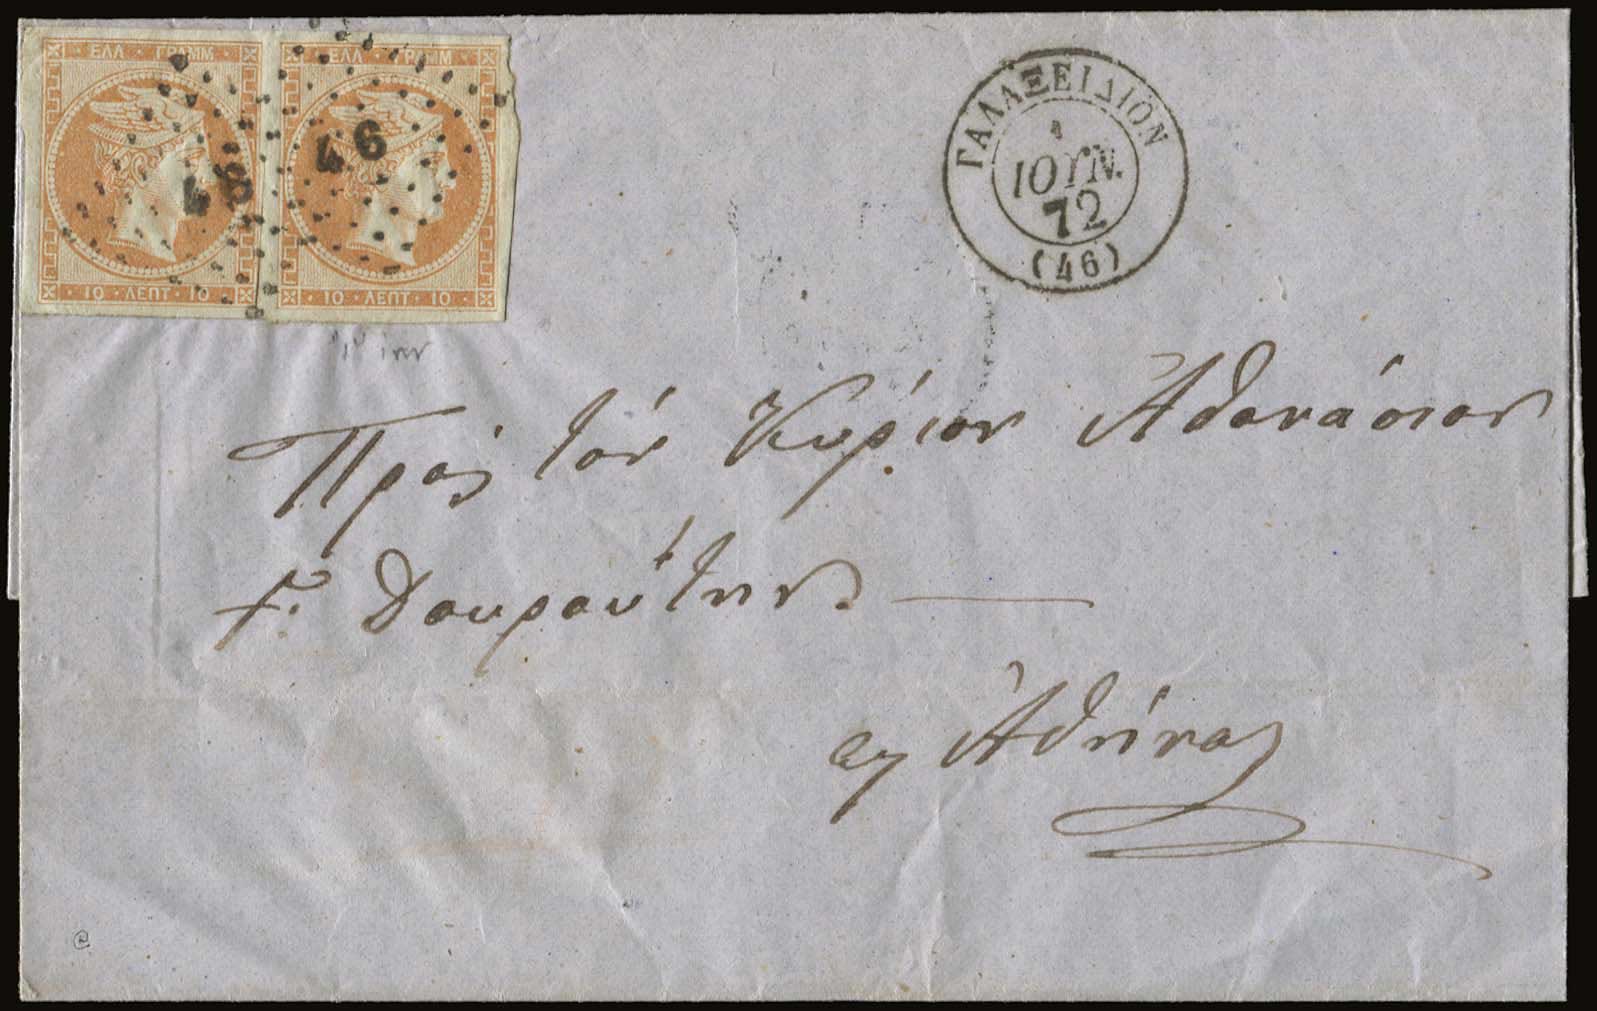 ΕΛΛ · ΓΡΑΜΜ
ΕΛΛ · ΓΡΑΜΜ
46
46
10 · ΛΕΠΤ · 10
10 · ΛΕΠΤ · 10
ΓΑΛΑΞΕΙΔΙΟΝ
1
ΙΟΥΝ.
72
(46)
Πρὸς τὸν Κύριον Ἀθανάσιον
Γ. Δουρούτην
εἰς Ἀθήνας